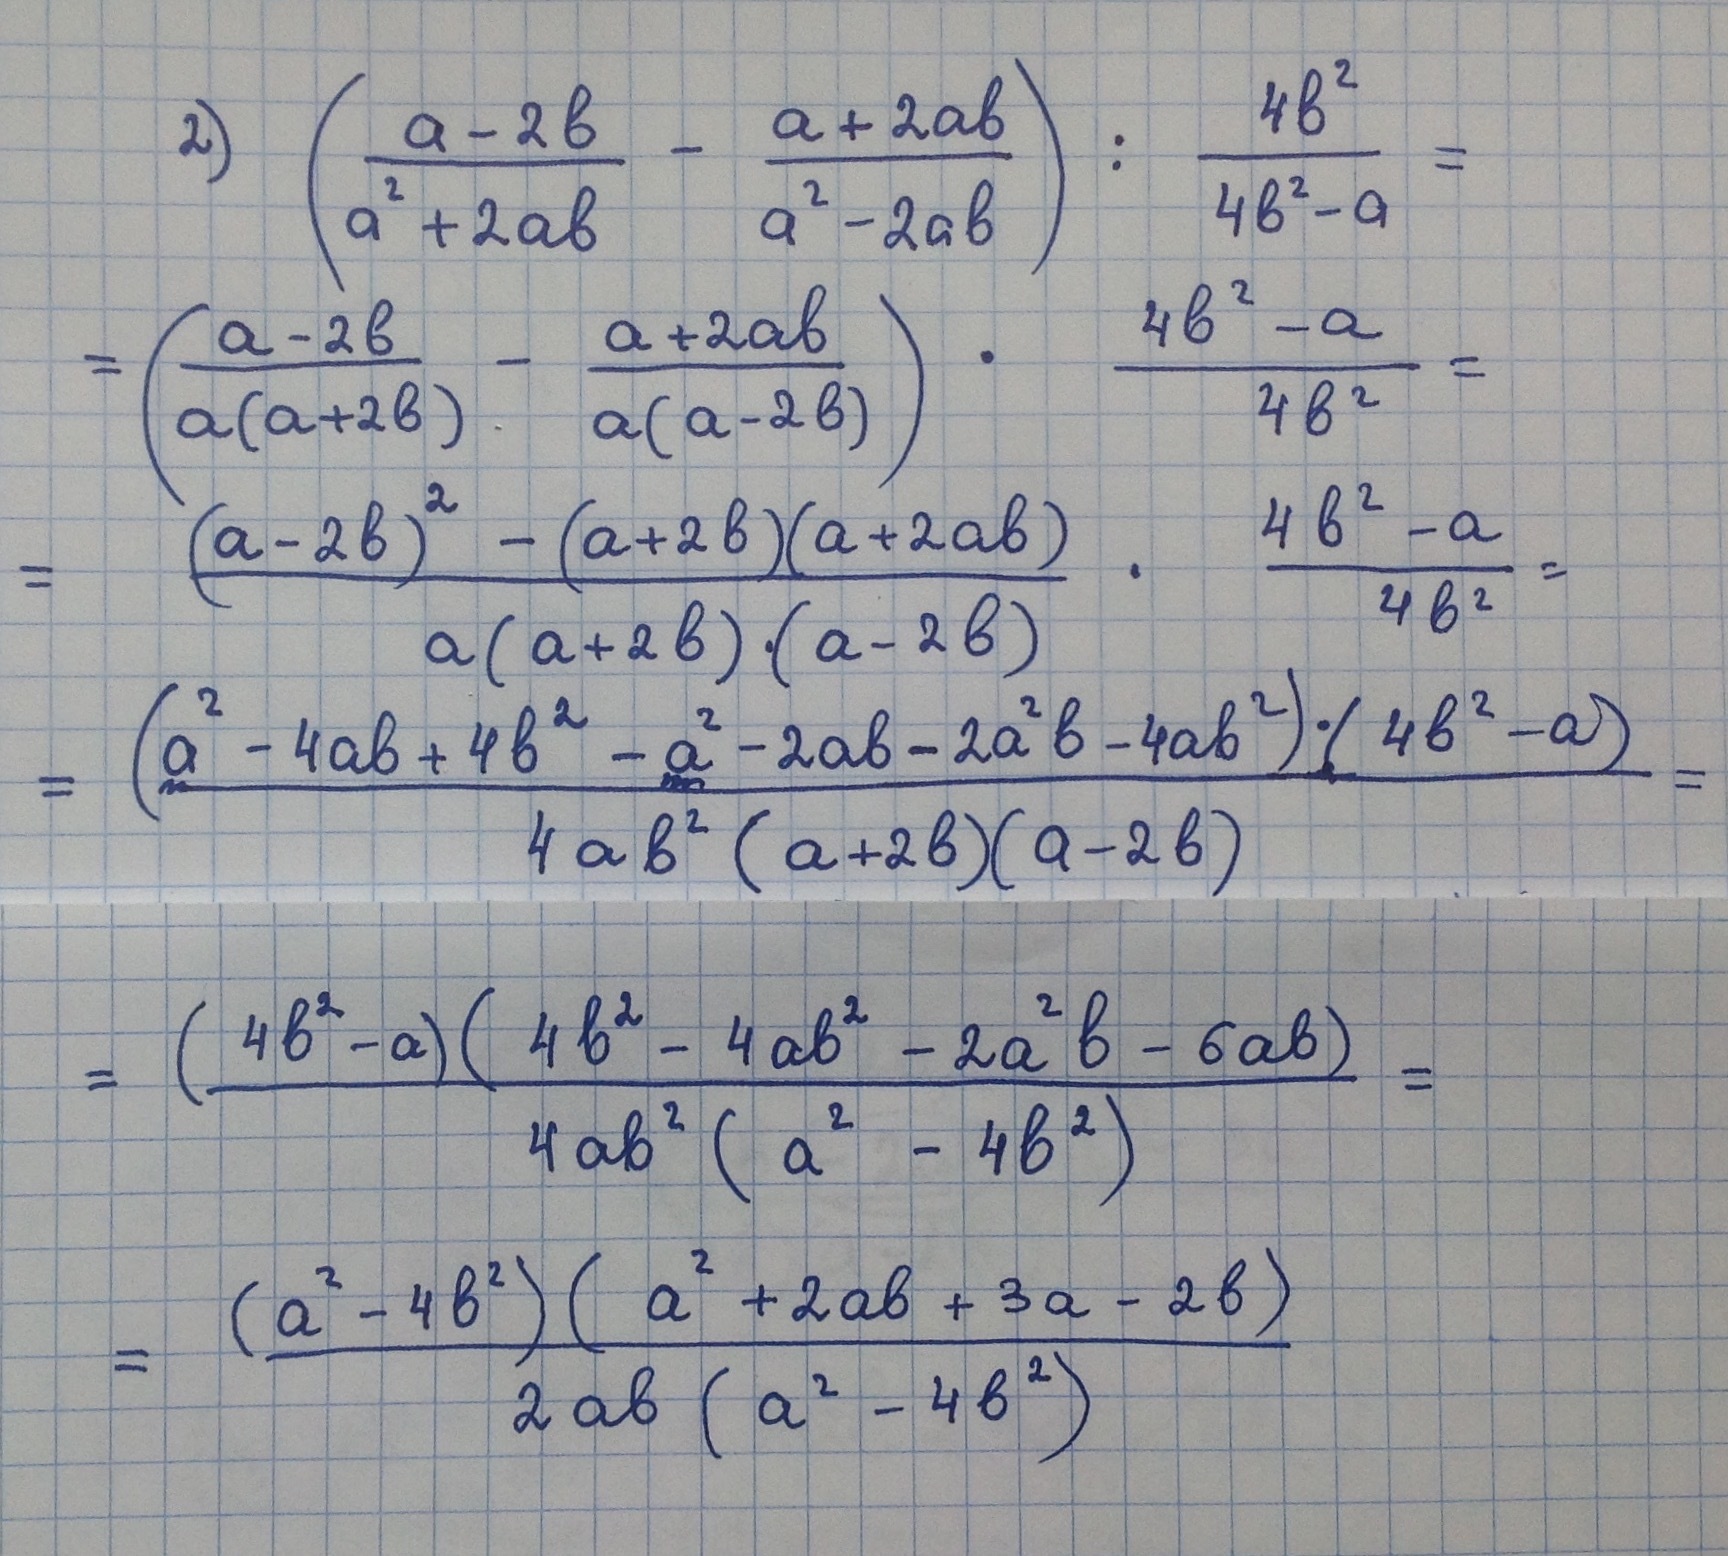 2) ((a-2b)/(a²+2ab) - (a+2ab)/(a²-2ab)) : 4b²/(4b²-a) =
= ((a-2b)/(a(a+2b)) - (a+2ab)/(a(a-2b))) · (4b²-a)/(4b²) =
= ((a-2b)² - (a+2b)(a+2ab))/(a(a+2b)·(a-2b)) · (4b²-a)/(4b²) =
= ((a²-4ab+4b²-a²-2ab-2a²b-4ab²)·(4b²-a))/(4ab²(a+2b)(a-2b)) =
= ((4b²-a)(4b²-4ab²-2a²b-6ab))/(4ab²(a²-4b²)) =
= ((a²-4b²)(a²+2ab+3a-2b))/(2ab(a²-4b²))